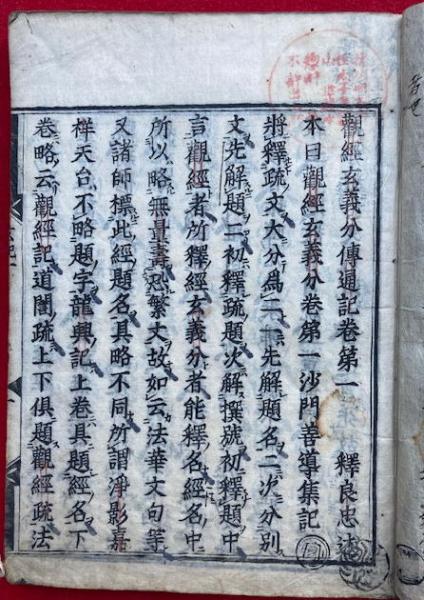 觀經玄義分傳通記卷第一 釋良忠述
本曰觀經玄義分卷第一沙門善導集記
將釋疏文大分爲二一先解題名二次分別
文先解題二初釋疏題次解撰號初釋題中
言觀經者所釋經玄義分者能釋名經名中
所以略無量壽恐繁文故如云法華文句等
又諸師標此經題名具略不同所謂淨影嘉
祥天台不略題字龍興記上卷具題經名下
卷略云觀經記道誾疏上下俱題觀經疏法